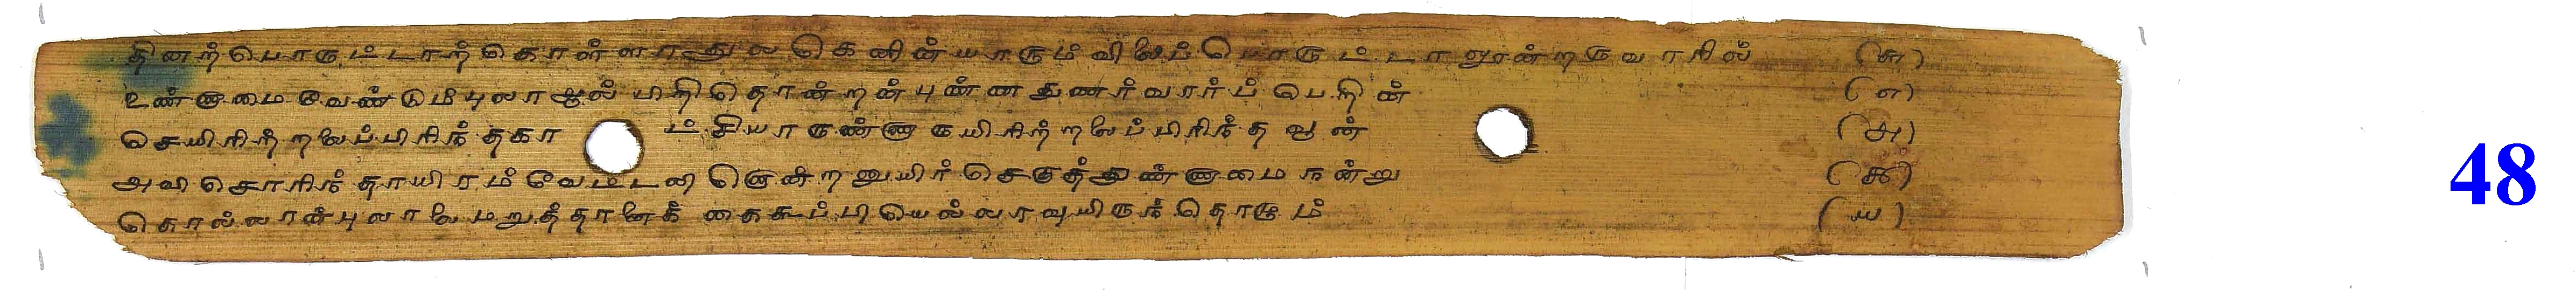 தினற்பொருட்டாற்கொள்ளாதுலகெனின்யாரும்விலைப்பொருட்டாலூன்றருவாரில் (௬)
உண்ணாமைவேண்டும்புலாஅல் பிறிதொன்றன்புண்ணதுணர்வார்ப்பெறின் (௭)
செயிரிற்றலைப்பிரிந்தகா ட்சியாருண்ணாருயிரிற்றலைப்பிரிந்தவூன் (௮)
அவிசொரிந்தாயிரம்வேட்டலி னொன்றனுயிர்செகுத்துண்ணாமைநன்று (௯)
கொல்லான்புலாலைமறுத்தானைக் கைகூப்பியெல்லாவுயிருந்தொழும் (௰)
48